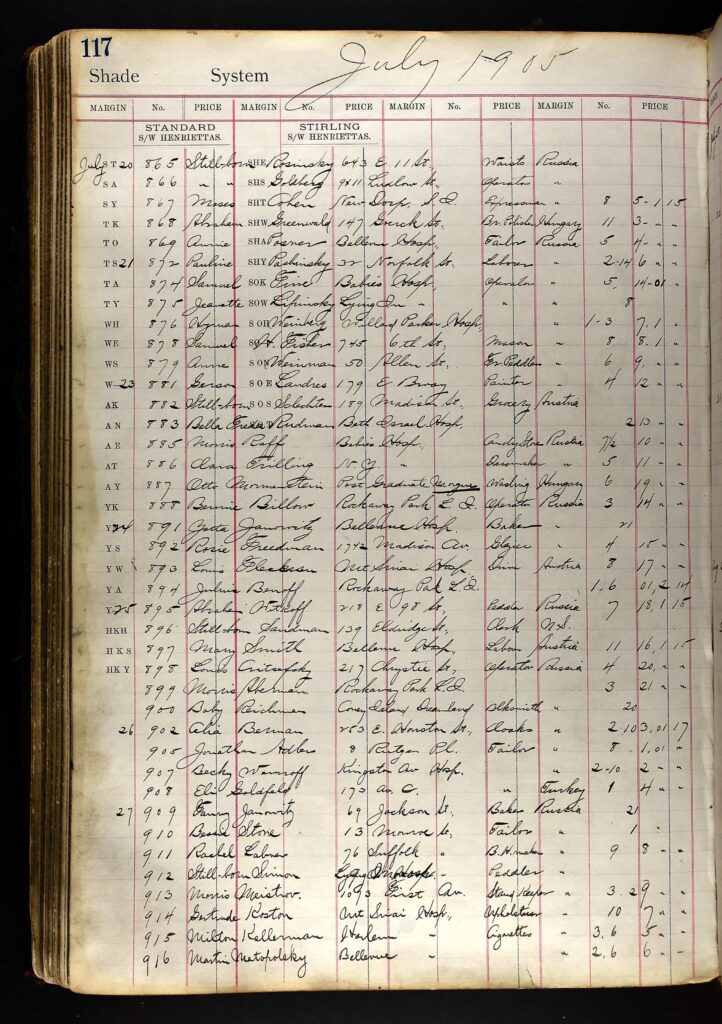 117
Shade System July 1905
MARGIN No. PRICE MARGIN No. PRICE MARGIN No. PRICE MARGIN No. PRICE
STANDARD STIRLING
S/W HENRIETTAS. S/W HENRIETTAS.
July ST 20 865 Still-born SHE Rosinsky 643 E 11 St, Waists Russia
SA 866 " " SHS Goldberg Ludlow St, Operator "
SY 867 Moses SHT Cohen New Dorp, S. I. Expressman " 8 5-1,15
TK 868 Abraham SHW Greenwald 147 Goerck St, Hungary 11 3 - " "
TO 869 Annie SHA Posner Bellevue Hosp, Tailor Russia 5 4 - " "
TS 21 872 Pauline SHY Pashinsky 32 Norfolk St, Laborer " 2-14 6 " "
TA 874 Samuel SOK Fine Babies Hosp, Operator " 5, 14-01 "
TY 875 Jeanette SOW Lapinsky Lying In " " " 8
WH 876 Hyman SOH Weinberg Willard Parker Hosp, " 1-3 7, 1 "
WE 878 Samuel H. Fisher 745 6th St, Mason " 8 8. 1 "
WS 879 Anne SON Weinman 50 Allen St, Peddler " 6 9, " "
W 23 881 Gerson SOE Landres 179 E Bway Painter " 4 12 " "
AK 882 Still-born SOS Schlechter 189 Madison St, Grocery Austria
AN 883 Bella Freda Rudman Beth Israel Hosp, 2 13 " "
AE 885 Morris Raff Babies Hosp, Candy Store Russia 7½ 10 " "
AT 886 Clara Trilling N.Y. " Dressmaker " 5 11 - "
AY 887 Otto Stein Post Graduate Morgue Washing Hungary 6 19 " "
YK 888 Bennie Billow Rockaway Park L. I. Operator Russia 3 14 " "
Y 24 891 Yetta Janowitz Bellevue Hosp Baker " 21
YS 892 Rosie Freedman 1742 Madison Av. Glazier " 4 15 - "
YW 893 Louis Mt Sinai Hosp. Austria 8 17 - "
YA 894 Julius Benoff Rockaway Park L.I. 1.6 01, 2 14
Y 25 895 Abraham 218 E 98 St, Peddler Russia 7 18, 1, 15
HKH 896 Still-born Sandman 139 Eldridge St, Clerk U.S.
HKS 897 Mary Smith Bellevue Hosp, Labour Austria 11 16, 1 15
HKY 898 Louis 217 Chrystie St, Operator Russia 4 20, " "
899 Morris Aberman Rockaway Park L.I. 3 21 " "
900 Baby Reichman Coney Island Blksmith " 20
26 902 Celia Berman 253 E. Houston St, Cloaks " 2-10 3, 01 17
905 Jonathan Adler 8 Rutgers Pl. Tailor " 8 - 1, 01 "
907 Becky Kingston Av Hosp. " 2-10 2 - "
908 Eli Goldfeld 173 Av. C. " Turkey 1 4 " "
27 909 Fanny Janowitz 69 Jackson St, Baker Russia 21
910 Bessie Stone 13 Monroe St, Tailor " 1 "
911 Rachel Labner 76 Suffolk " B.H. maker " 9 8 - "
912 Still-born Simon Lying In Hosp, - Peddler "
913 Morris Meistrov. 1093 First Av. Stand Keeper " 3. 29 " "
914 Gertrude Koston Mt Sinai Hosp, Upholsterer " 10 7 " "
915 Milton Kellerman Harlem " Cigarettes " 3, 6 5 " "
916 Martin Matopolsky Bellevue " " 2, 6 6 - "